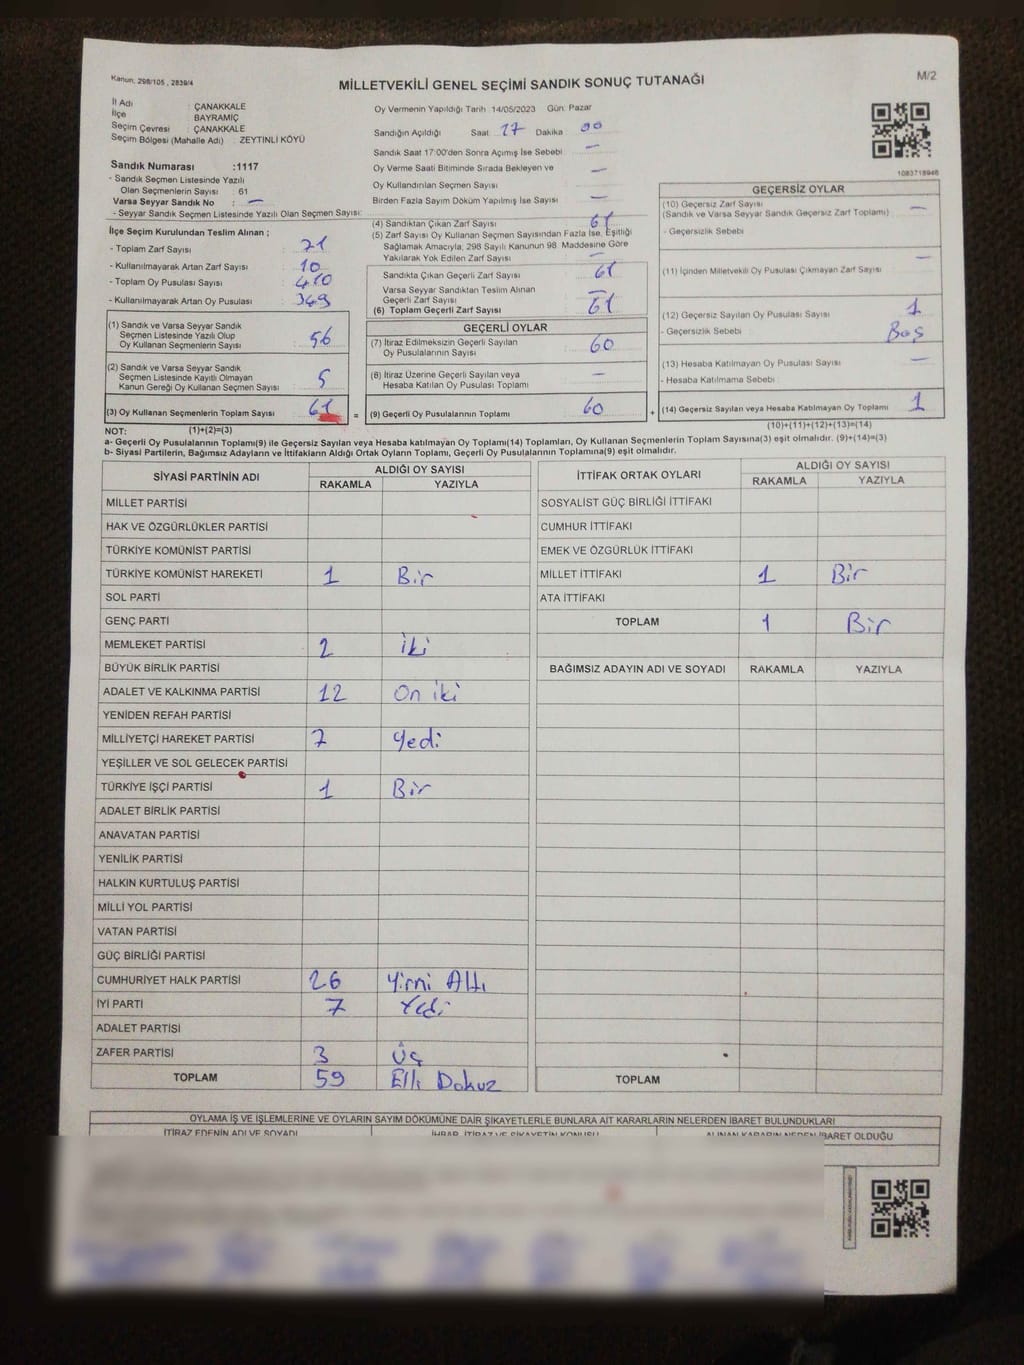 Kanun, 298/105 , 2839/4
MİLLETVEKİLİ GENEL SEÇİMİ SANDIK SONUÇ TUTANAĞI
M/2
İl Adı : ÇANAKKALE
İlçe BAYRAMİÇ
Seçim Çevresi : ÇANAKKALE
Seçim Bölgesi (Mahalle Adı) : ZEYTİNLİ KÖYÜ
Oy Vermenin Yapıldığı Tarih :14/05/2023 Gün: Pazar
Sandığın Açıldığı Saat 17 Dakika 00
Sandık Saat 17:00'den Sonra Açımış İse Sebebi —
Oy Verme Saati Bitiminde Sırada Bekleyen ve
Oy Kullandırılan Seçmen Sayısı —
Birden Fazla Sayım Döküm Yapılmış İse Sayısı —
Sandık Numarası :1117
- Sandık Seçmen Listesinde Yazılı
Olan Seçmenlerin Sayısı : 61
Varsa Seyyar Sandık No : —
- Seyyar Sandık Seçmen Listesinde Yazılı Olan Seçmen Sayısı:
İlçe Seçim Kurulundan Teslim Alınan ;
- Toplam Zarf Sayısı 71
- Kullanılmayarak Artan Zarf Sayısı 10
- Toplam Oy Pusulası Sayısı 410
- Kullanılmayarak Artan Oy Pusulası 349
(1) Sandık ve Varsa Seyyar Sandık
Seçmen Listesinde Yazılı Olup
Oy Kullanan Seçmenlerin Sayısı 56
(2) Sandık ve Varsa Seyyar Sandık
Seçmen Listesinde Kayıtlı Olmayan
Kanun Gereği Oy Kullanan Seçmen Sayısı 5
(3) Oy Kullanan Seçmenlerin Toplam Sayısı 61 =
(4) Sandıktan Çıkan Zarf Sayısı 61
(5) Zarf Sayısı Oy Kullanan Seçmen Sayısından Fazla İse, Eşitliği
Sağlamak Amacıyla, 298 Sayılı Kanunun 98. Maddesine Göre
Yakılarak Yok Edilen Zarf Sayısı —
Sandıkta Çıkan Geçerli Zarf Sayısı 61
Varsa Seyyar Sandıktan Teslim Alınan
Geçerli Zarf Sayısı —
(6) Toplam Geçerli Zarf Sayısı 61
GEÇERLİ OYLAR
(7) İtiraz Edilmeksizin Geçerli Sayılan
Oy Pusulalarının Sayısı 60
(8) İtiraz Üzerine Geçerli Sayılan veya
Hesaba Katılan Oy Pusulası Toplamı —
(9) Geçerli Oy Pusulalarının Toplamı 60 +
1083718946
GEÇERSİZ OYLAR
(10) Geçersiz Zarf Sayısı —
(Sandık ve Varsa Seyyar Sandık Geçersiz Zarf Toplamı)
- Geçersizlik Sebebi
(11) İçinden Milletvekili Oy Pusulası Çıkmayan Zarf Sayısı —
(12) Geçersiz Sayılan Oy Pusulası Sayısı 1
- Geçersizlik Sebebi Boş
(13) Hesaba Katılmayan Oy Pusulası Sayısı —
- Hesaba Katılmama Sebebi
(14) Geçersiz Sayılan veya Hesaba Katılmayan Oy Toplamı 1
NOT: (1)+(2)=(3) (10)+(11)+(12)+(13)=(14)
a- Geçerli Oy Pusulalarının Toplamı(9) ile Geçersiz Sayılan veya Hesaba katılmayan Oy Toplamı(14) Toplamları, Oy Kullanan Seçmenlerin Toplam Sayısına(3) eşit olmalıdır. (9)+(14)=(3)
b- Siyasi Partilerin, Bağımsız Adayların ve İttifakların Aldığı Ortak Oyların Toplamı, Geçerli Oy Pusulalarının Toplamına(9) eşit olmalıdır.
SİYASİ PARTİNİN ADI ALDIĞI OY SAYISI
RAKAMLA YAZIYLA
MİLLET PARTİSİ
HAK VE ÖZGÜRLÜKLER PARTİSİ
TÜRKİYE KOMÜNİST PARTİSİ
TÜRKİYE KOMÜNİST HAREKETİ 1 Bir
SOL PARTİ
GENÇ PARTİ
MEMLEKET PARTİSİ 2 İki
BÜYÜK BİRLİK PARTİSİ
ADALET VE KALKINMA PARTİSİ 12 On iki
YENİDEN REFAH PARTİSİ
MİLLİYETÇİ HAREKET PARTİSİ 7 Yedi
YEŞİLLER VE SOL GELECEK PARTİSİ
TÜRKİYE İŞÇİ PARTİSİ 1 Bir
ADALET BİRLİK PARTİSİ
ANAVATAN PARTİSİ
YENİLİK PARTİSİ
HALKIN KURTULUŞ PARTİSİ
MİLLİ YOL PARTİSİ
VATAN PARTİSİ
GÜÇ BİRLİĞİ PARTİSİ
CUMHURİYET HALK PARTİSİ 26 Yirmi Altı
İYİ PARTİ 7 Yedi
ADALET PARTİSİ
ZAFER PARTİSİ 3 Üç
TOPLAM 59 Elli Dokuz
İTTİFAK ORTAK OYLARI ALDIĞI OY SAYISI
RAKAMLA YAZIYLA
SOSYALİST GÜÇ BİRLİĞİ İTTİFAKI
CUMHUR İTTİFAKI
EMEK VE ÖZGÜRLÜK İTTİFAKI
MİLLET İTTİFAKI 1 Bir
ATA İTTİFAKI
TOPLAM 1 Bir
BAĞIMSIZ ADAYIN ADI VE SOYADI RAKAMLA YAZIYLA
TOPLAM
OYLAMA İŞ VE İŞLEMLERİNE VE OYLARIN SAYIM DÖKÜMÜNE DAİR ŞİKAYETLERLE BUNLARA AİT KARARLARIN NELERDEN İBARET BULUNDUKLARI
İTİRAZ EDENİN ADI VE SOYADI İHBAR, İTİRAZ VE ŞİKAYETİN KONUSU ALINAN KARARIN NEDEN İBARET OLDUĞU